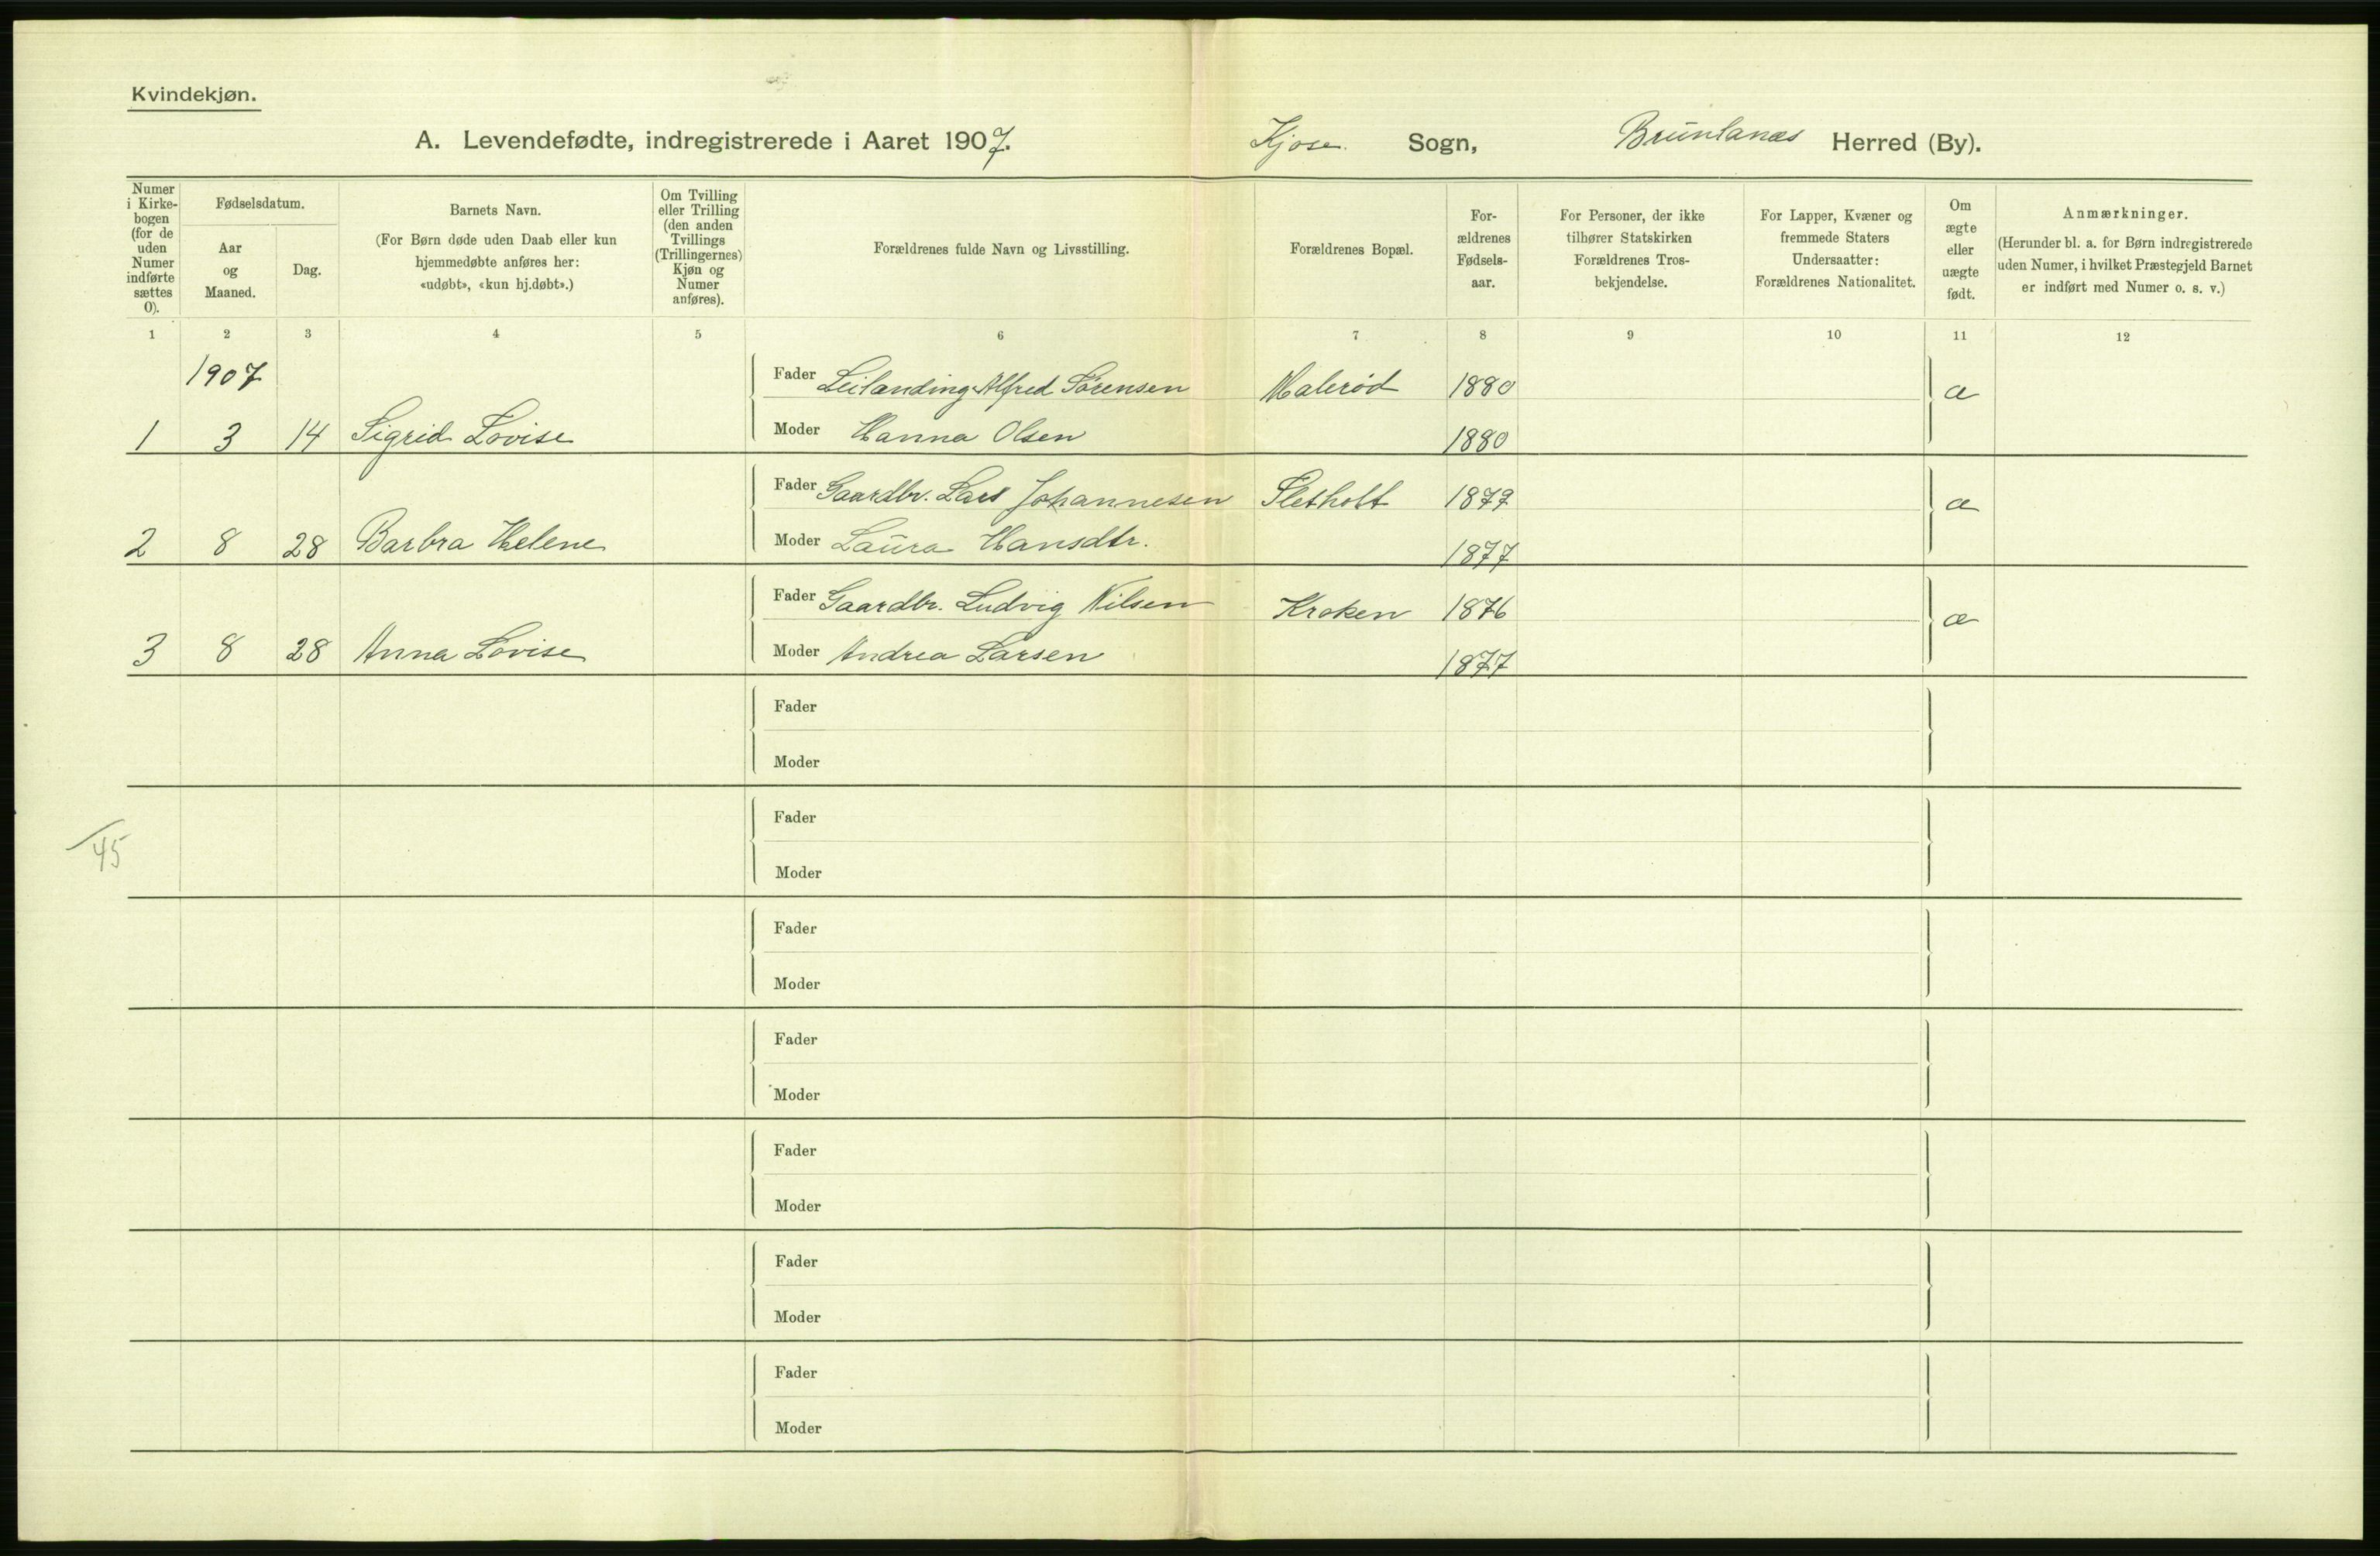 Kvindekjøn.
A. Levendefødte, indregistrerede i Aaret 1907. Kjose Sogn, Brunlanæs Herred (By).
Numer i Kirkebogen (for de uden Numer indførte sættes 0).
Fødselsdatum.
Aar og Maaned.
Dag.
Barnets Navn.
(For Børn døde uden Daab eller kun
hjemmedøbte anføres her:
«udøbt», «kun hj.døbt».)
Om Tvilling
eller Trilling
(den anden
Tvillings
(Trillingernes)
Kjøn og
Numer
anføres).
Forældrenes fulde Navn og Livsstilling.
Forældrenes Bopæl.
For-
ældrenes
Fødsels-
aar.
For Personer, der ikke
tilhører Statskirken
Forældrenes Tros-
bekjendelse.
For Lapper, Kvæner og
fremmede Staters
Undersaatter:
Forældrenes Nationalitet.
Om
ægte
eller
uægte
født.
Anmærkninger.
(Herunder bl. a. for Børn indregistrerede
uden Numer, i hvilket Præstegjeld Barnet
er indført med Numer o. s. v.)
1 2 3 4 5 6 7 8 9 10 11 12
1907 Fader Leilænding Alfred Sörensen Malerød 1880 æ
1 3 14 Sigrid Lovise Moder Hanna Olsen 1880
Fader Gaardbr. Lars Johannesen Sletholt 1879 æ
2 8 28 Barbra Helene Moder Laura Hansdtr. 1877
Fader Gaardbr. Ludvig Nilsen Kroken 1876 æ
3 8 28 Anna Lovise Moder Andrea Larsen 1877
Fader
Moder
Fader
45
Moder
Fader
Moder
Fader
Moder
Fader
Moder
Fader
Moder
Fader
Moder